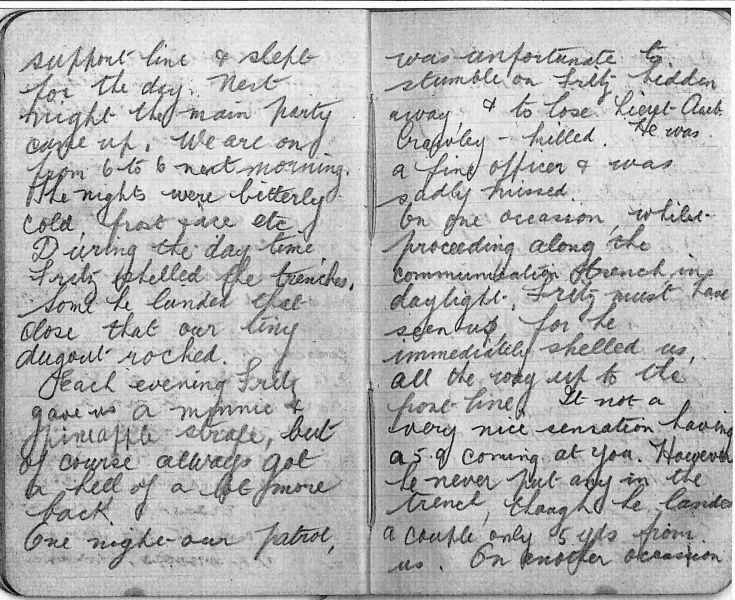 support line & slept
for the day. Next
night the main party
came up. We are on
from 6 to 6 next morning.
The nights were bitterly
cold, frost etc
During the day time
Fritz shelled the trenches.
Some he landed that
close that our tiny
dugout rocked.
Each evening Fritz
gave us a minnie &
pineapple strafe, but
of course always got
a hell of a lot more
back.
One night our patrol,
was unfortunate to
stumble on Fritz hidden
away, & to lose Lieut
Crawley - killed. He was
a fine officer & was
sadly missed.
On one occasion, whilst
proceeding along the
communication trench in
daylight, Fritz must have
seen us, for he
immediately shelled us,
all the way up to the
front line. It not a
very nice sensation having
a 5.9 coming at you. However
he never put any in the
trench, though he landed
a couple only 5 yds from
us. On another occasion